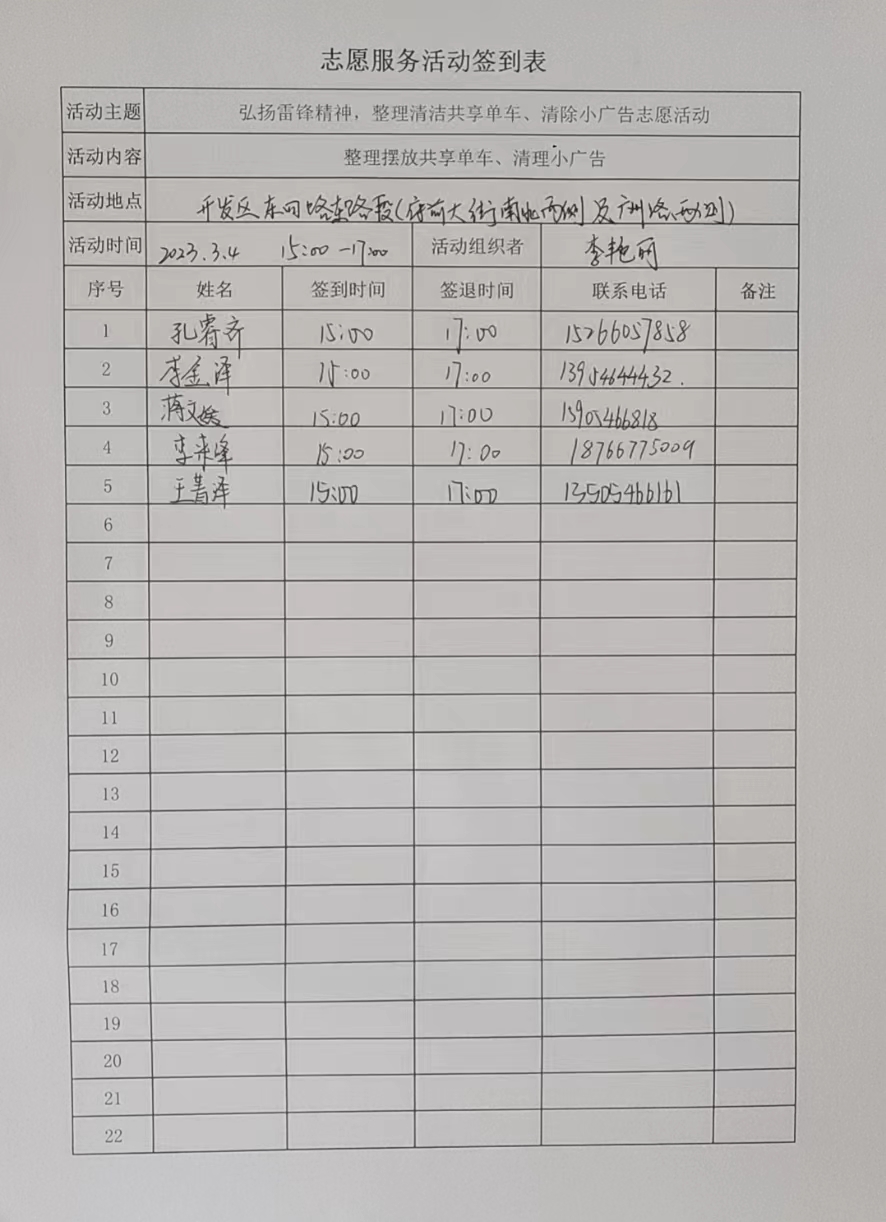 志愿服务活动签到表
活动主题 弘扬雷锋精神，整理清洁共享单车、清除小广告志愿活动
活动内容 整理摆放共享单车、清理小广告
活动地点 开发区东四路东路段(府前大街南北两侧及广州路西侧)
活动时间 2023.3.4 15:00-17:00 活动组织者 李艳丽
序号 姓名 签到时间 签退时间 联系电话 备注
1 孔睿齐 15:00 17:00 15266057858
2 李金泽 15:00 17:00 13954644432.
3 蒋文媛 15:00 17:00 15905466818
4 李来峰 15:00 17:00 18766775009
5 王菁泽 15:00 17:00 13505466161
6
7
8
9
10
11
12
13
14
15
16
17
18
19
20
21
22